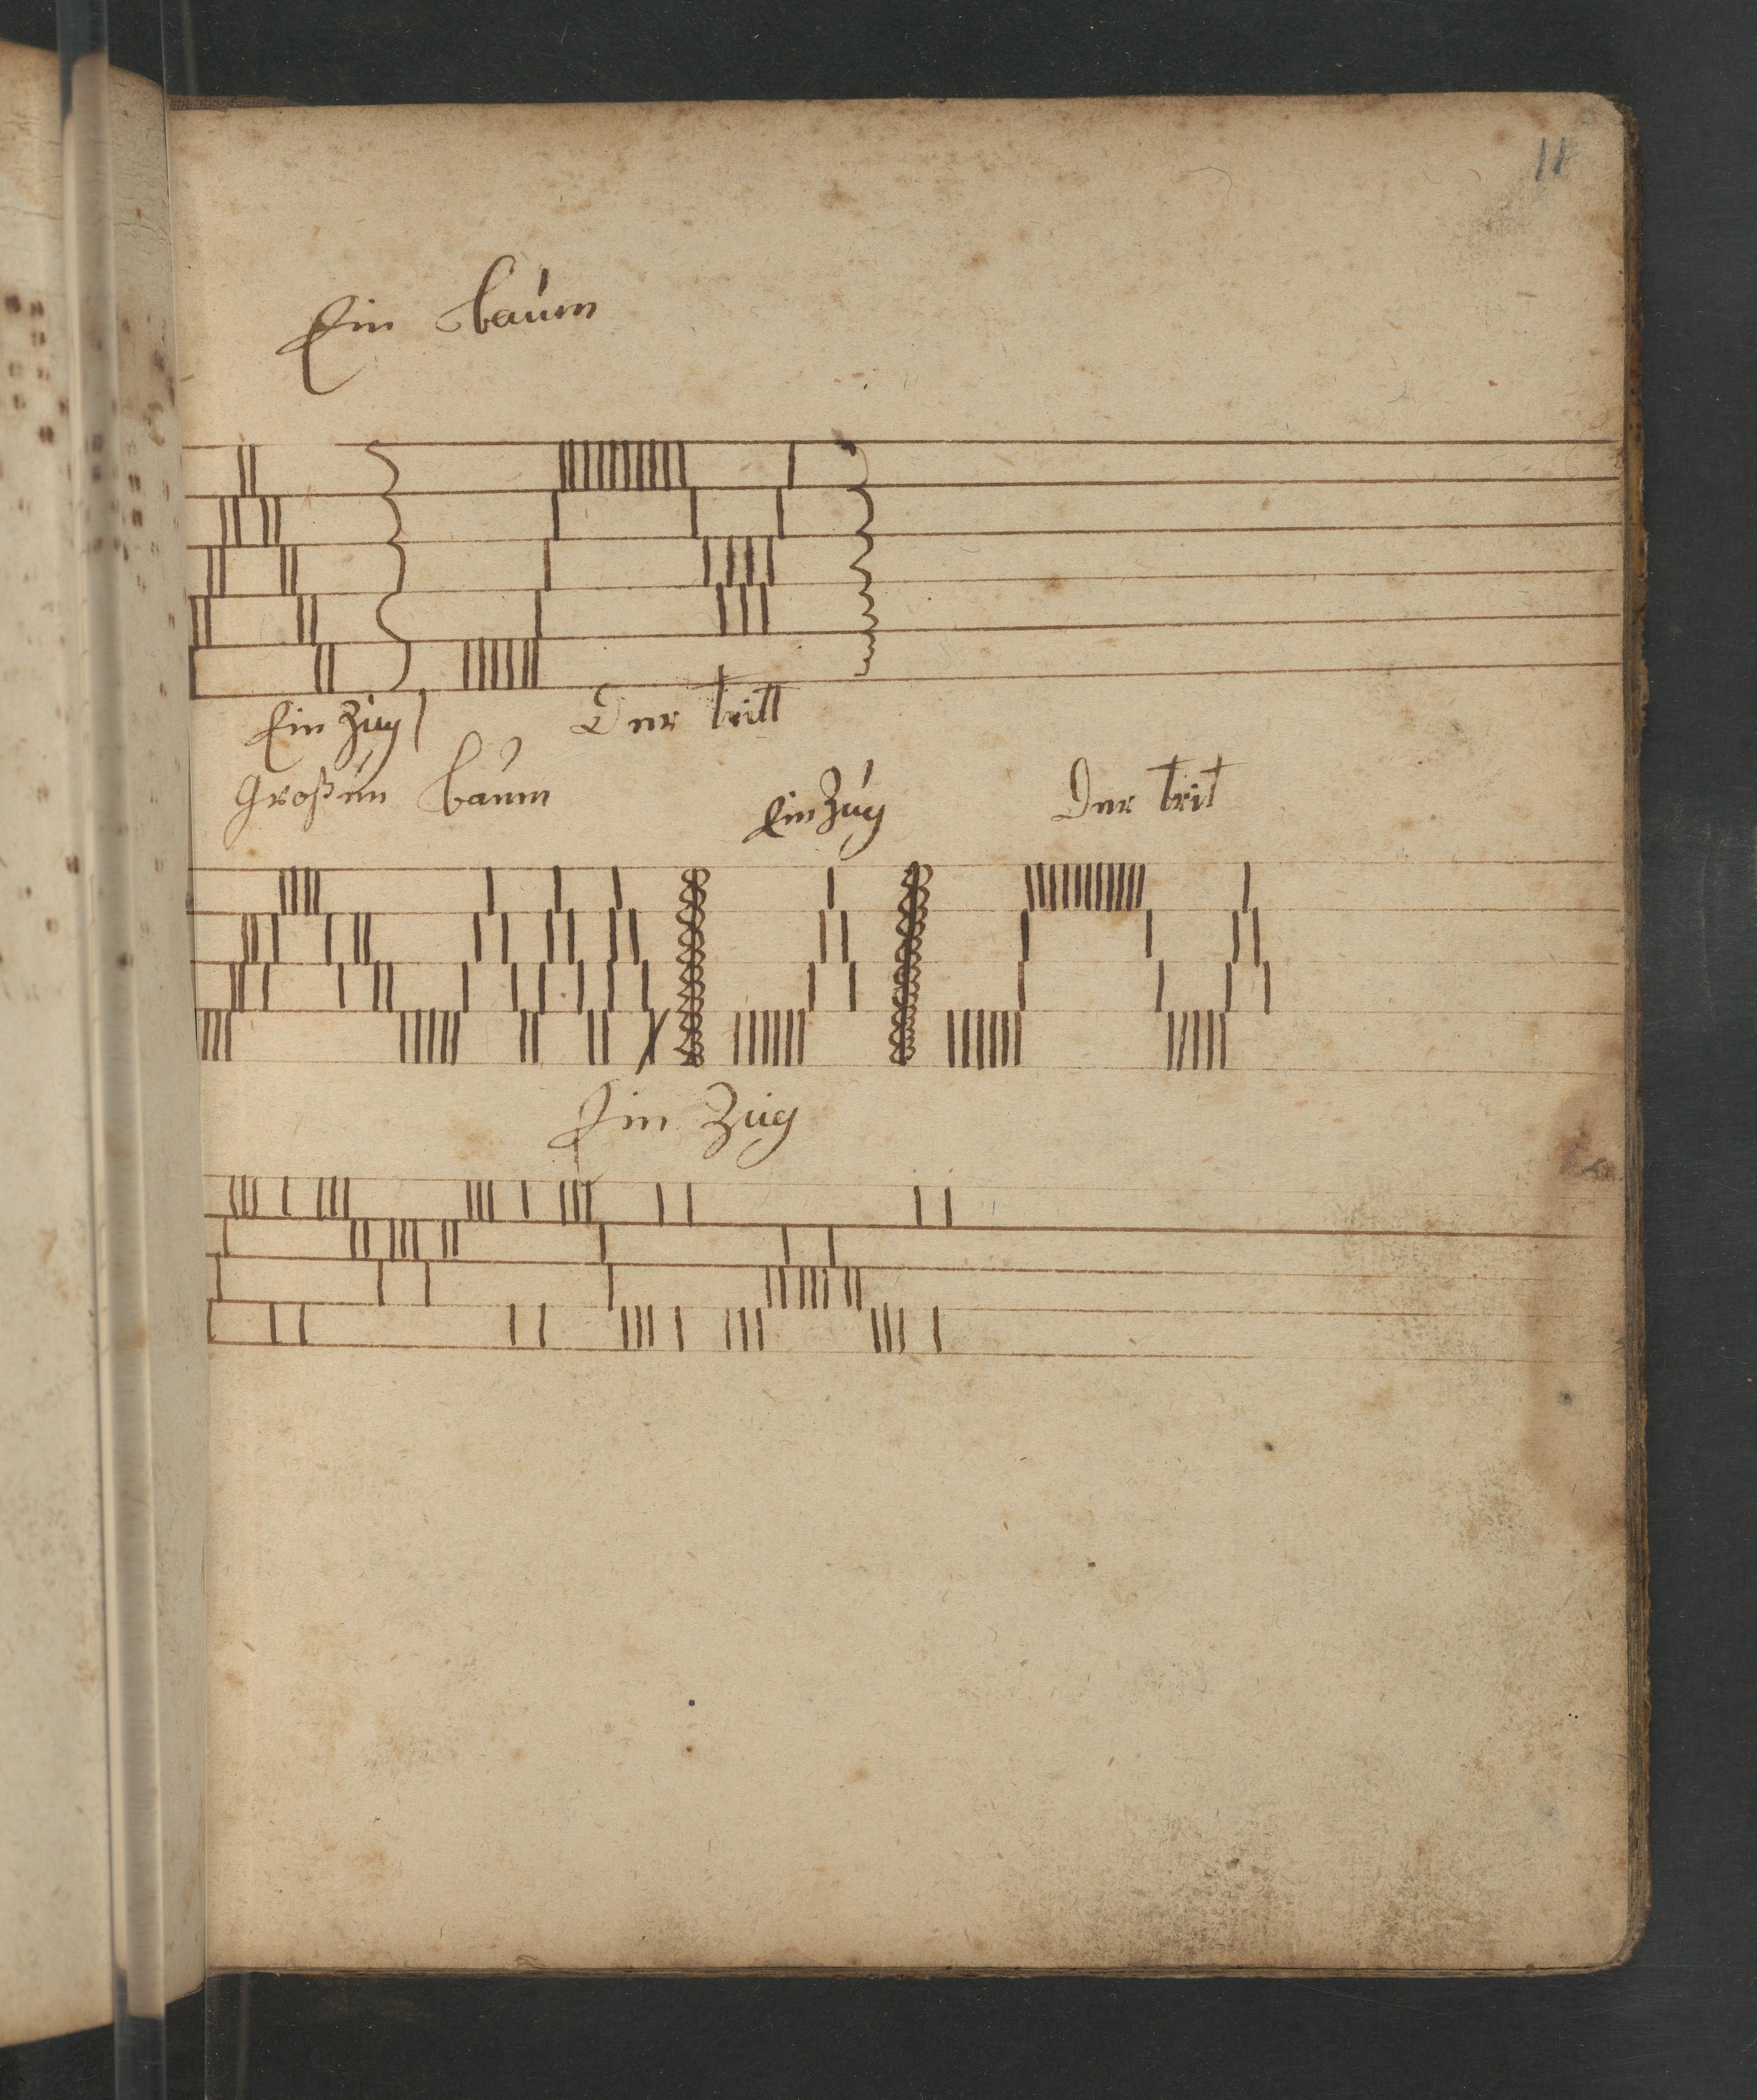 11
Ein baum
Ein Zug
Der tritt
Großen baum
Ein Zug
Der trit
Ein Zug